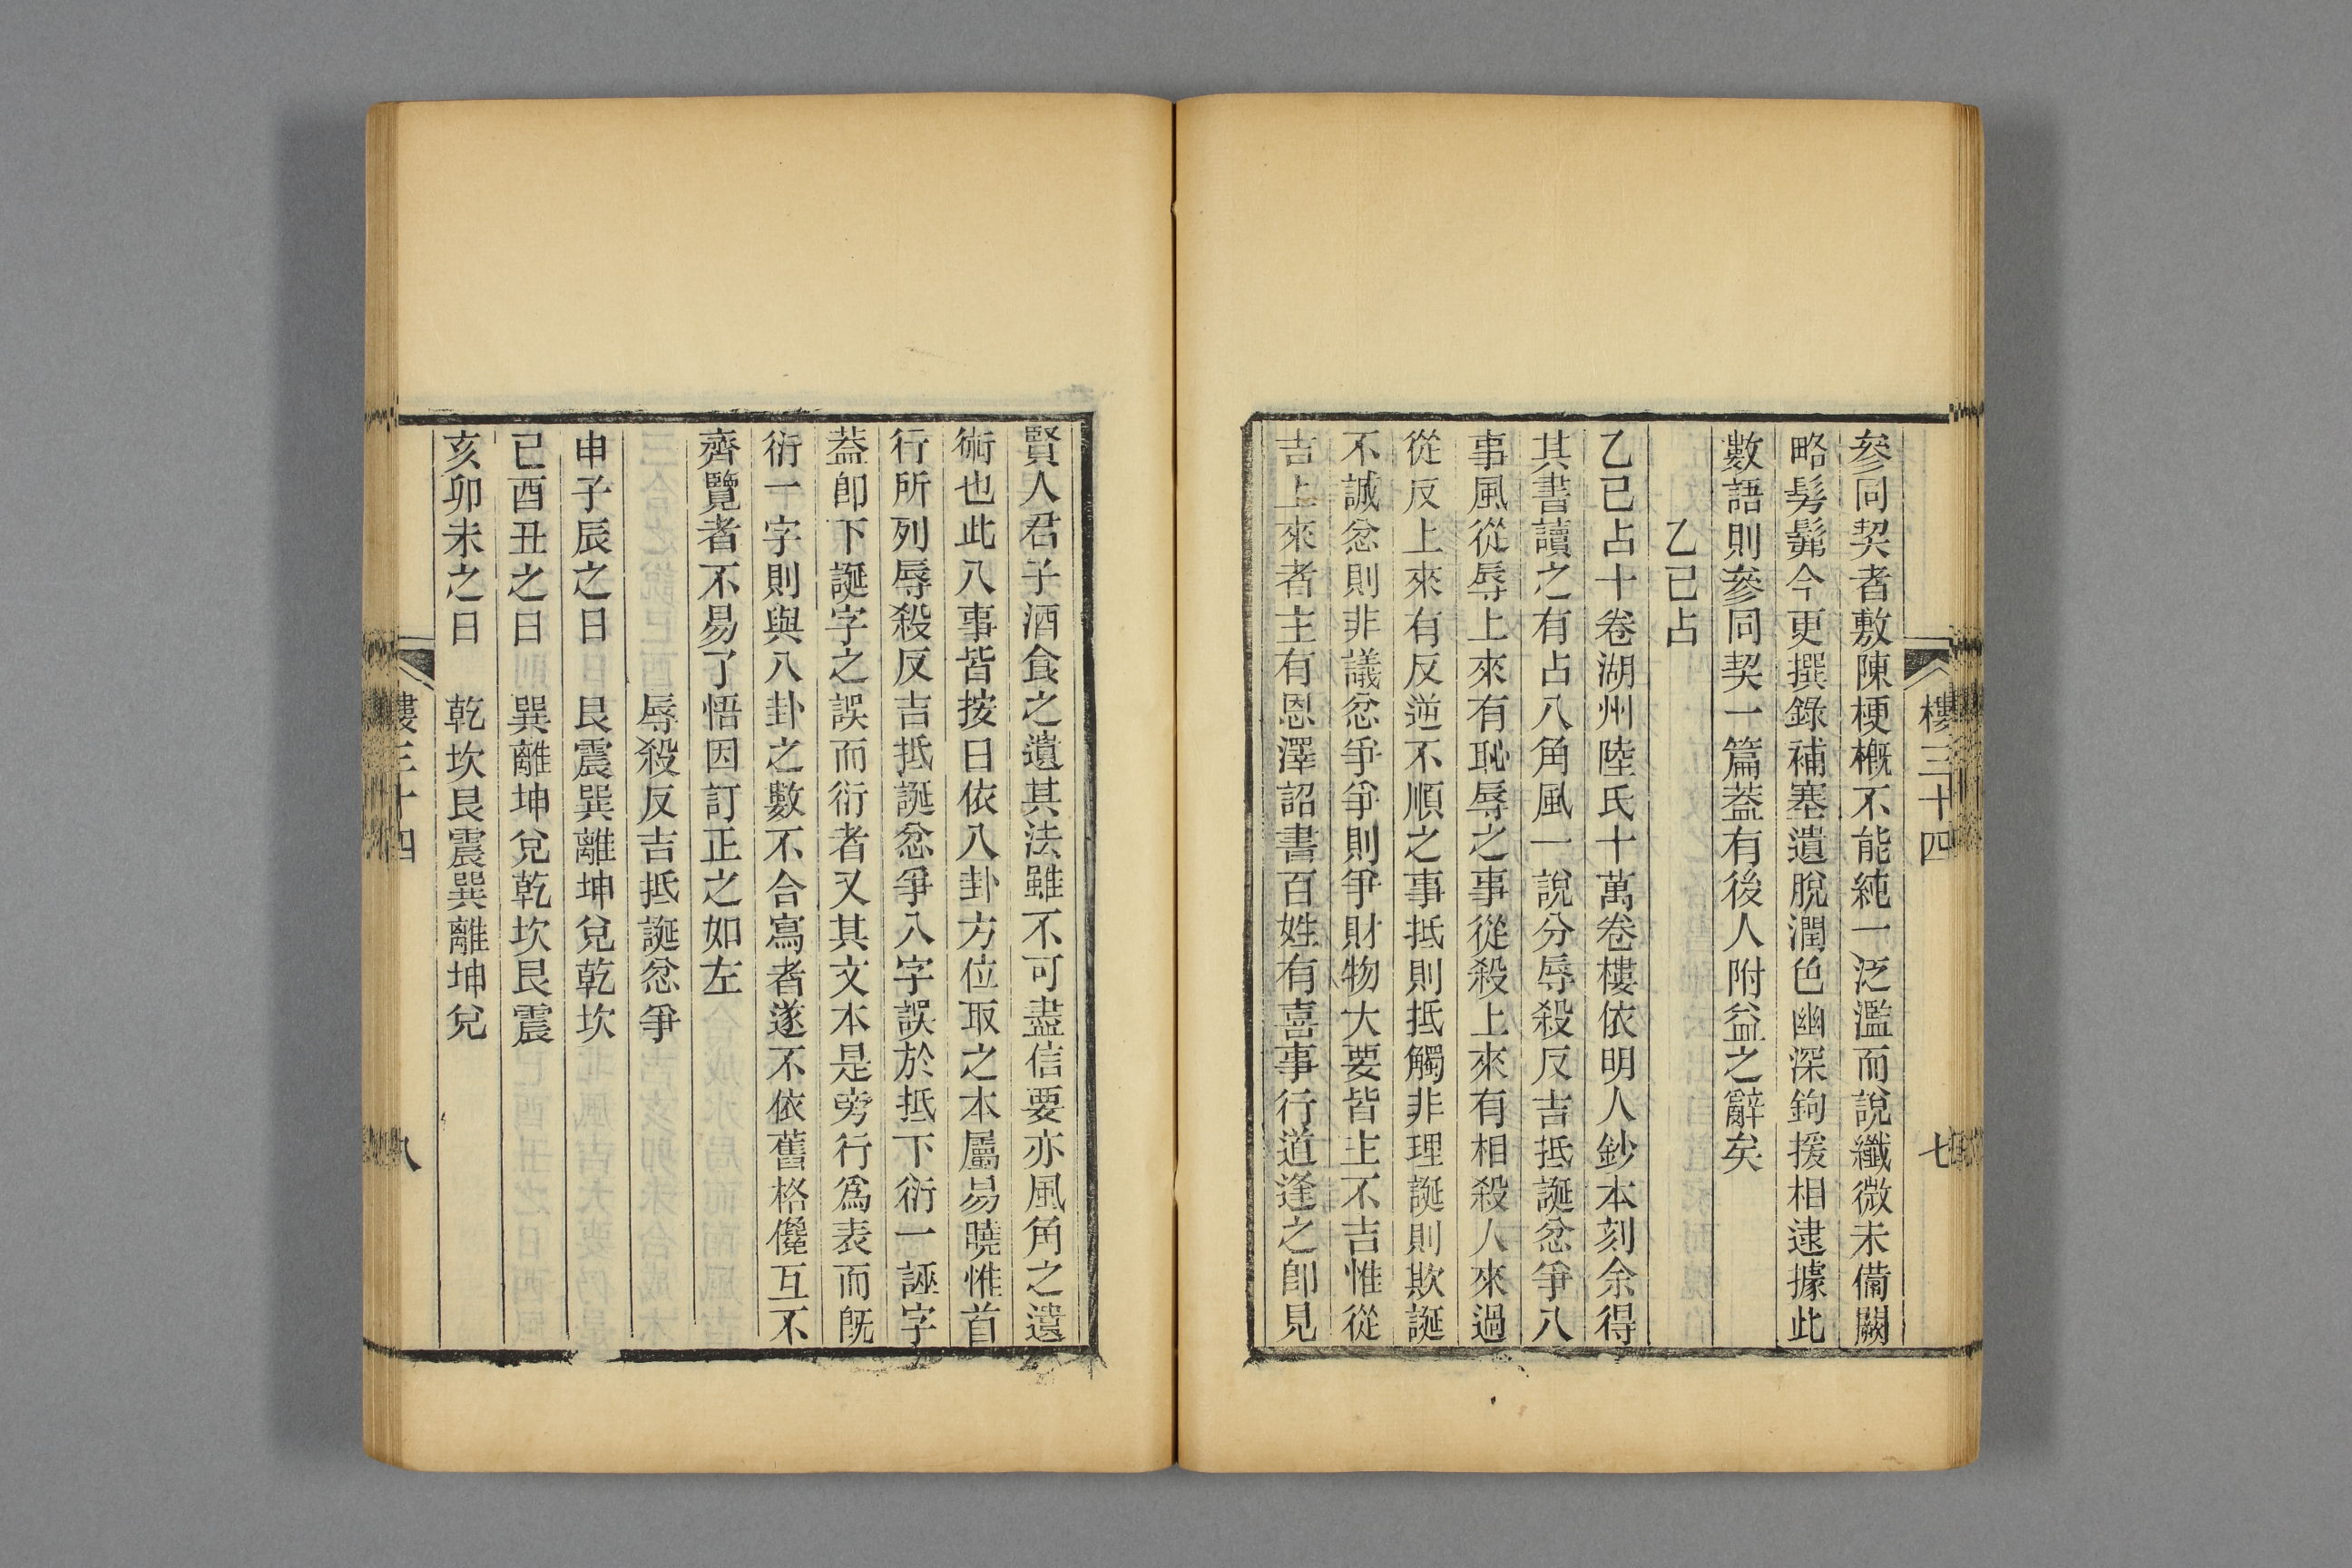 樓三十四
七
參同契者敷陳梗概不能純一泛濫而說纖微未備闕
略髣髴今更撰錄補塞遺脫潤色幽深鉤援相逮據此
數語則參同契一篇葢有後人附益之辭矣
乙巳占
乙巳占十卷湖州陸氏十萬卷樓依明人鈔本刻余得
其書讀之有占八角風一說分辱殺反吉抵誕忿爭八
事風從辱上來有恥辱之事從殺上來有相殺人來過
從反上來有反逆不順之事抵則抵觸非理誕則欺誕
不誠忿則非議忿爭爭則爭財物大要皆主不吉惟從
吉上來者主有恩澤詔書百姓有喜事行道逢之卽見
賢人君子酒食之遺其法雖不可盡信要亦風角之遺
術也此八事皆按日依八卦方位取之本屬易曉惟首
行所列辱殺反吉抵誕忿爭八字誤於抵下衍一誣字
葢卽下誕字之誤而衍者又其文本是旁行爲表而旣
衍一字則與八卦之數不合寫者遂不依舊格儳互不
齊覽者不易了悟因訂正之如左
辱殺反吉抵誕忿爭
申子辰之日　艮震巽離坤兌乾坎
巳酉丑之日　巽離坤兌乾坎艮震
亥卯未之日　乾坎艮震巽離坤兌
樓三十四
八